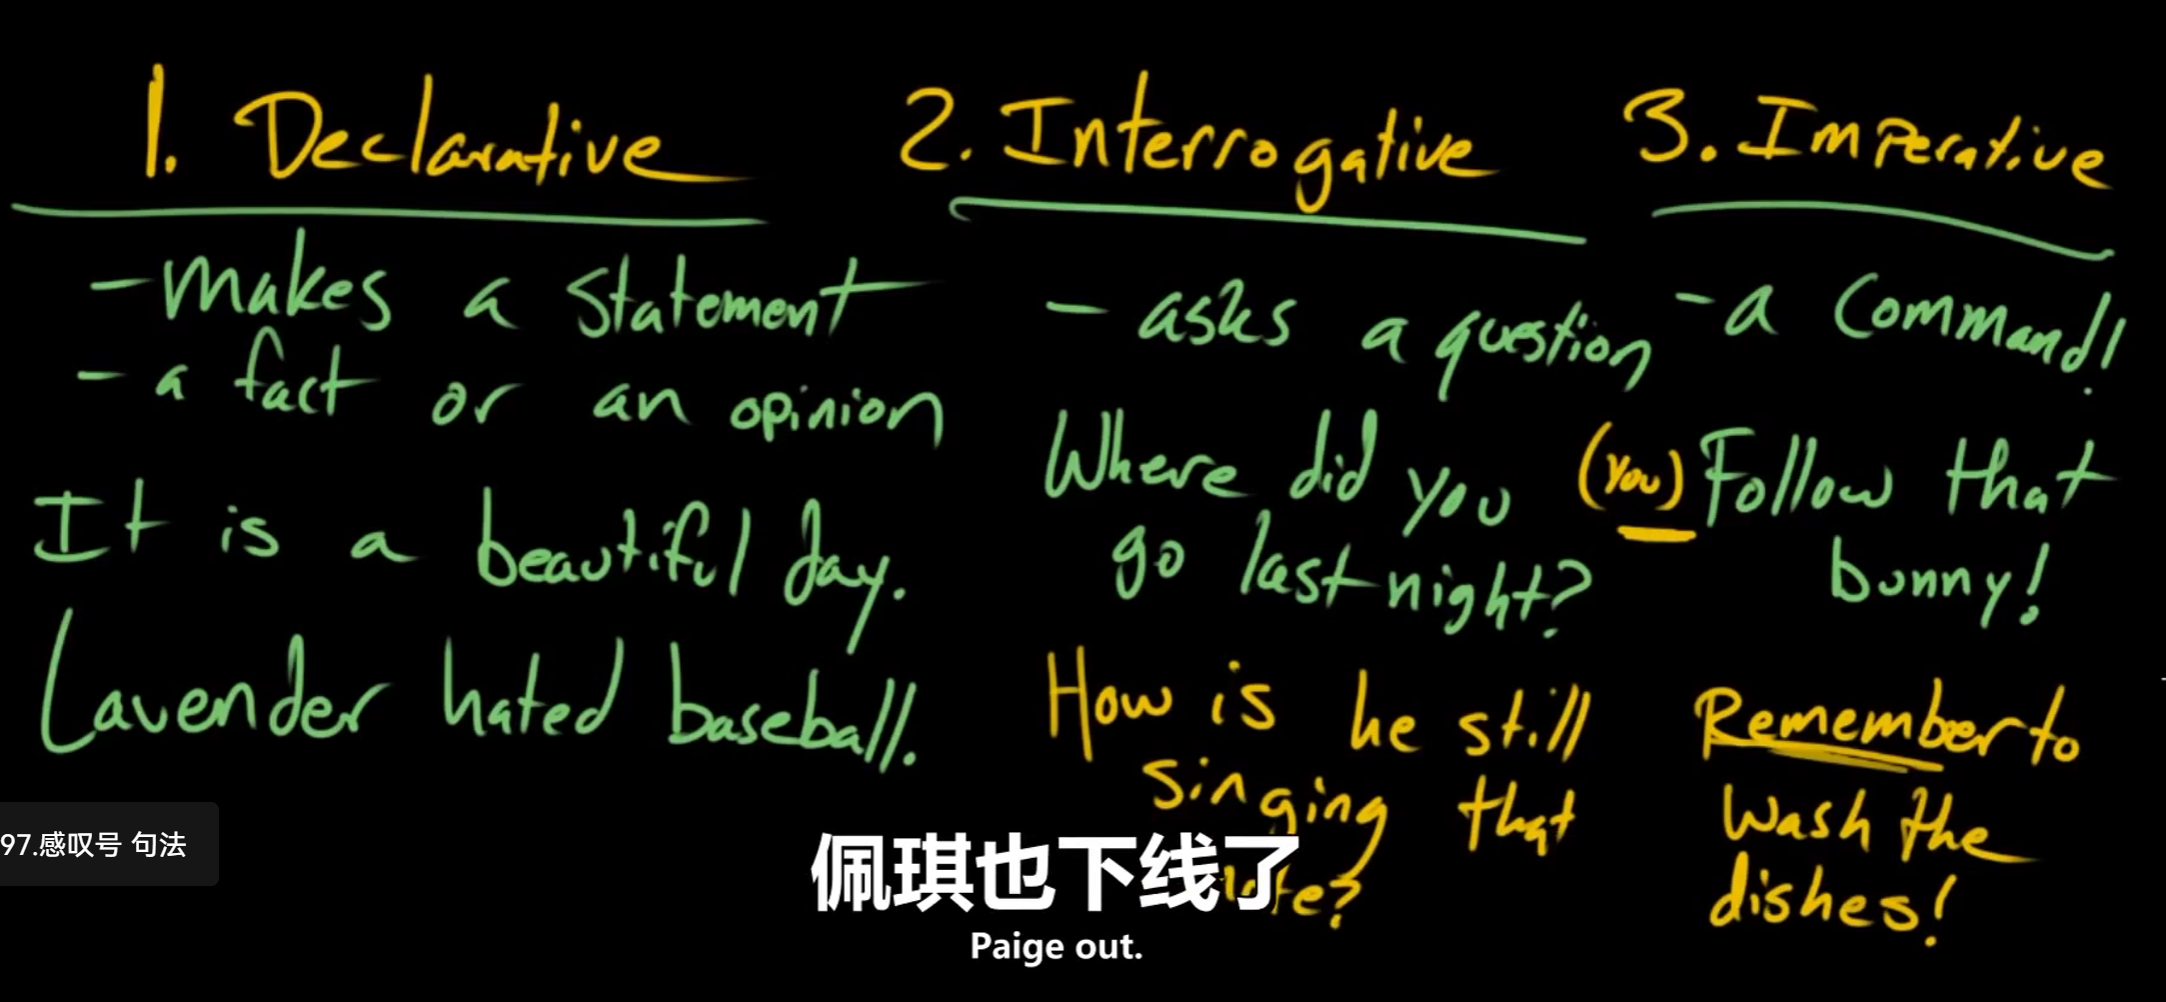 1. Declarative
- makes a statement
- a fact or an opinion
It is a beautiful day.
Lavender hated baseball.
2. Interrogative
- asks a question
Where did you
go last night?
How is he still
singing that
3. Imperative
- a command!
(you) Follow that
bunny!
Remember to
wash the
dishes!
97.感叹号 句法
佩琪也下线了
Paige out.